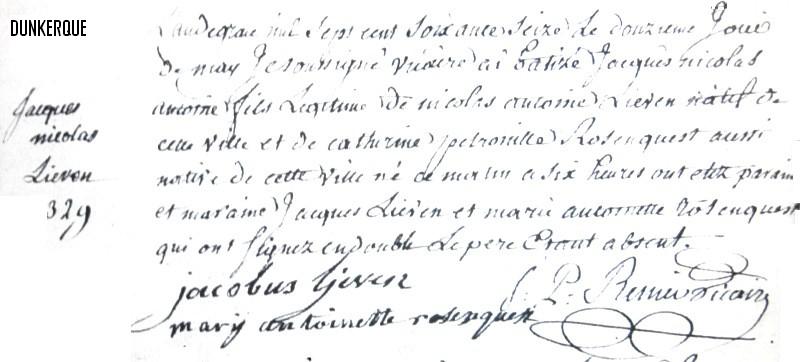 DUNKERQUE
Jacques
nicolas
Lieven
329
Landegrace mil sept cent soixante seize Le douzieme Jour
de may Je soussigné vicaire ai batizé Jacques nicolas
antoine fils Legitime de nicolas antoine Lieven natif de
cette ville et de catherine petronille Rosenquest aussi
native de cette ville né ce matin a six heures ont eté parain
et maraine Jacques Lieven et marie antoinette rosenquest
qui ont signez en double Le pere Etant absent.
jacobus lieven
P. Vicaire
mary antoinette rosenquest